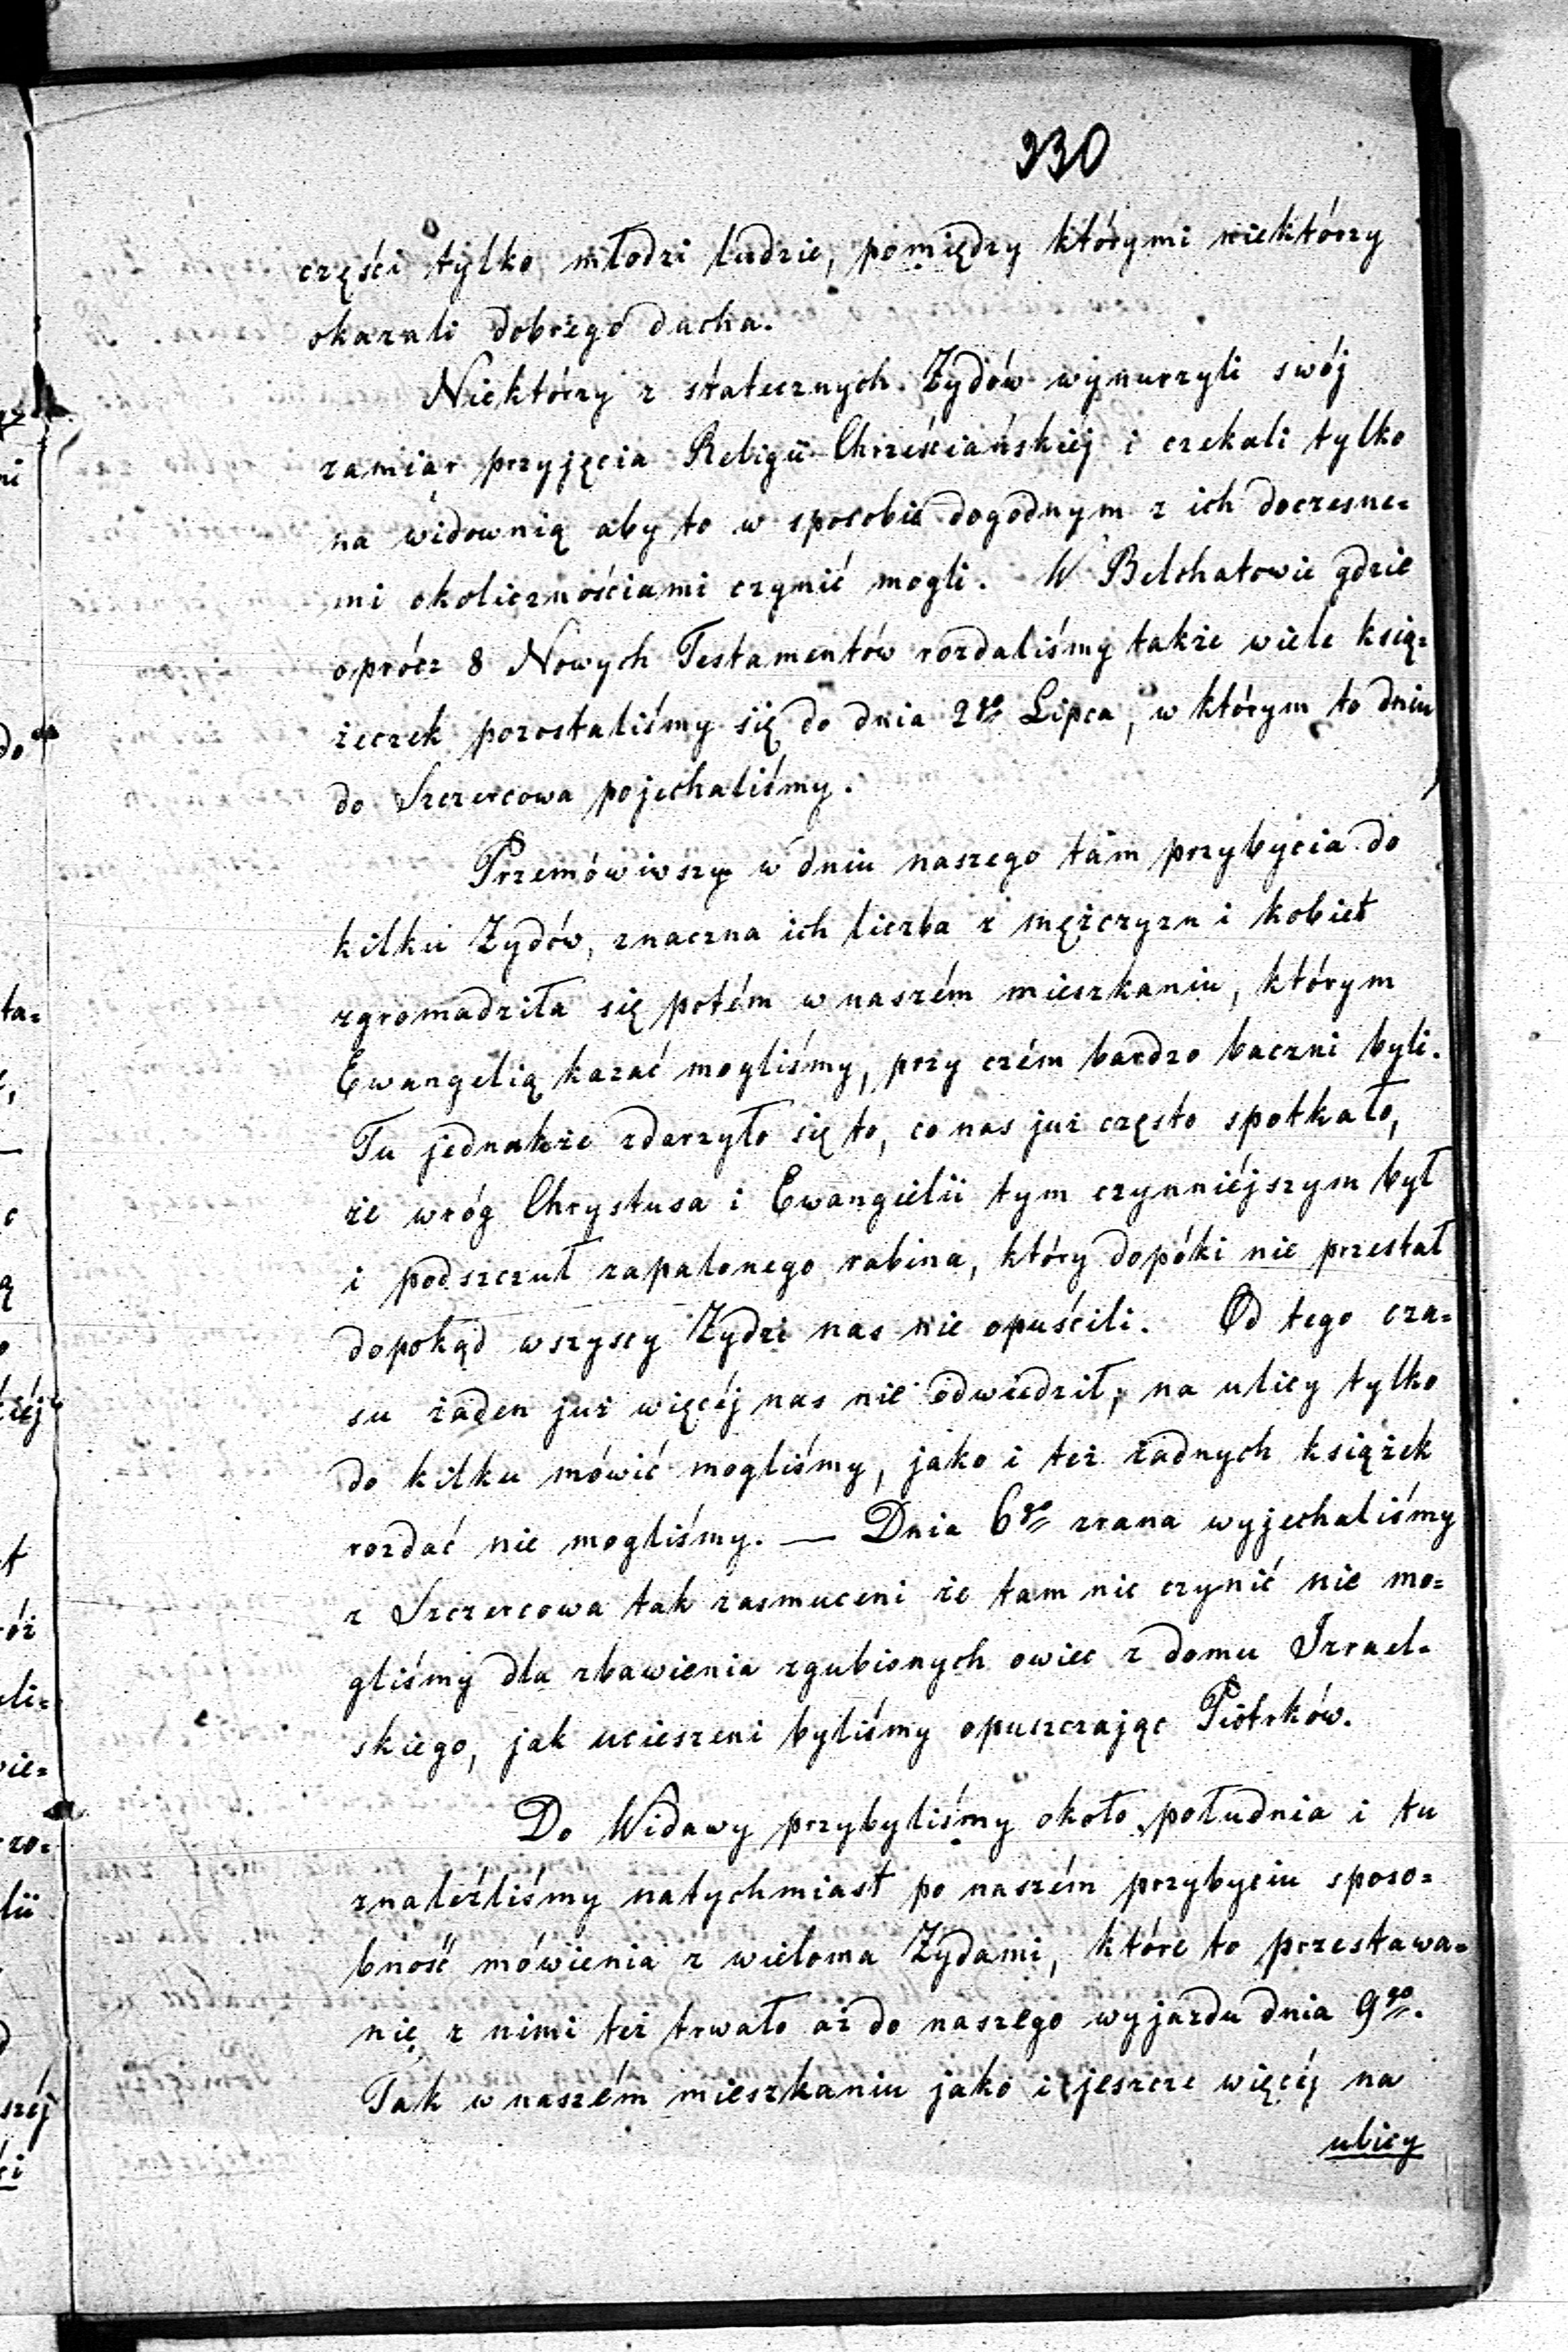 330
części tylko młodzi ludzie, pomiędzy którymi niektórzy
okazali dobrego ducha.
Niektórzy z statecznych Żydów wynurzyli swój
zamiar przyjęcia Religii Chrześciańskiéj i czekali tylko
na widownią aby to w sposobie dogodnym z ich doczesne=
mi okolicznościami czynić mogli. W Belchatowie gdzie
oprócz 8 Nowych Testamentów rozdaliśmy także wiele ksią=
żeczek pozostaliśmy się do dnia 2go Lipca, w którym to dniu
do Szczercowa pojechaliśmy.
Przemówiwszy w dniu naszego tam przybycia do
kilku Żydów, znaczna ich liczba z mężczyzn i kobiet
zgromadziła się potém w naszém mieszkaniu, którym
Ewangelią kazać mogliśmy, przy czém bardzo baczni byli.
Tu jednakże zdarzyło się to, co nas już często spotkało,
że wróg Chrystusa i Ewangielii tym czynniéjszym był
i podszczuł zapalonego rabina, który dopóki nie przestał
dopokąd wszyscy Żydzi nas nie opuścili. Od tego cza=
su żaden już więcéj nas nie odwiedził, na ulicy tylko
do kilku mówić mogliśmy, jako i też żadnych książek
rozdać nie mogliśmy. — Dnia 6go zrana wyjechaliśmy
z Szczercowa tak zasmuceni że tam nic czynić nie mo=
gliśmy dla zbawienia zgubionych owiec z domu Izrael=
skiego, jak ucieszeni byliśmy opuszczając Piotrków.
Do Widawy przybyliśmy około południa i tu
znaleźliśmy natychmiast po naszém przybyciu sposo=
bność mówienia z wieloma Żydami, które to przestawa=
nię z nimi też trwało aż do naszego wyjazdu dnia 9go.
Tak w naszém mieszkaniu jako i jeszcze więcéj na
ulicy